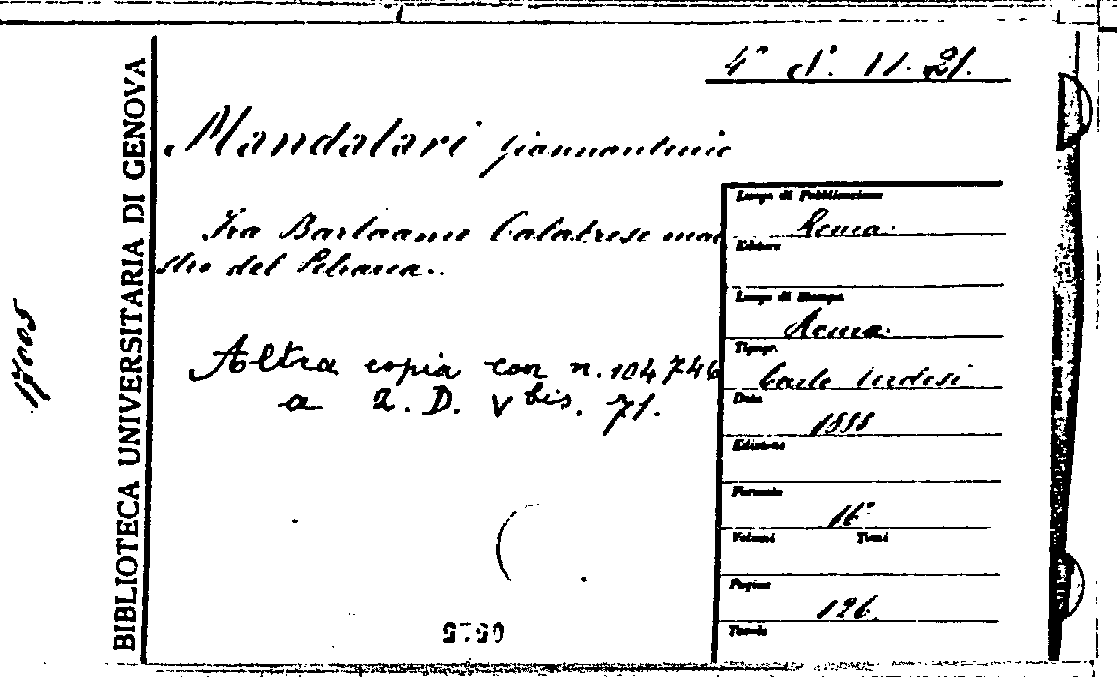 BIBLIOTECA UNIVERSITARIA DI GENOVA
17005
4ª S. 11. 21.
Mandalari Giannantonio
Fra Barlaamo Calabrese mae
stro del Petrarca.
Altra copia con n. 104746
a 2. D. V bis. 71.
Luogo di Pubblicazione
Roma.
Editore
Luogo di Stampa
Roma.
Tipogr.
Carlo Verdesi
Data
1888
Edizione
Formato
16°
Volumi Tomi
Pagine
126.
Tavole